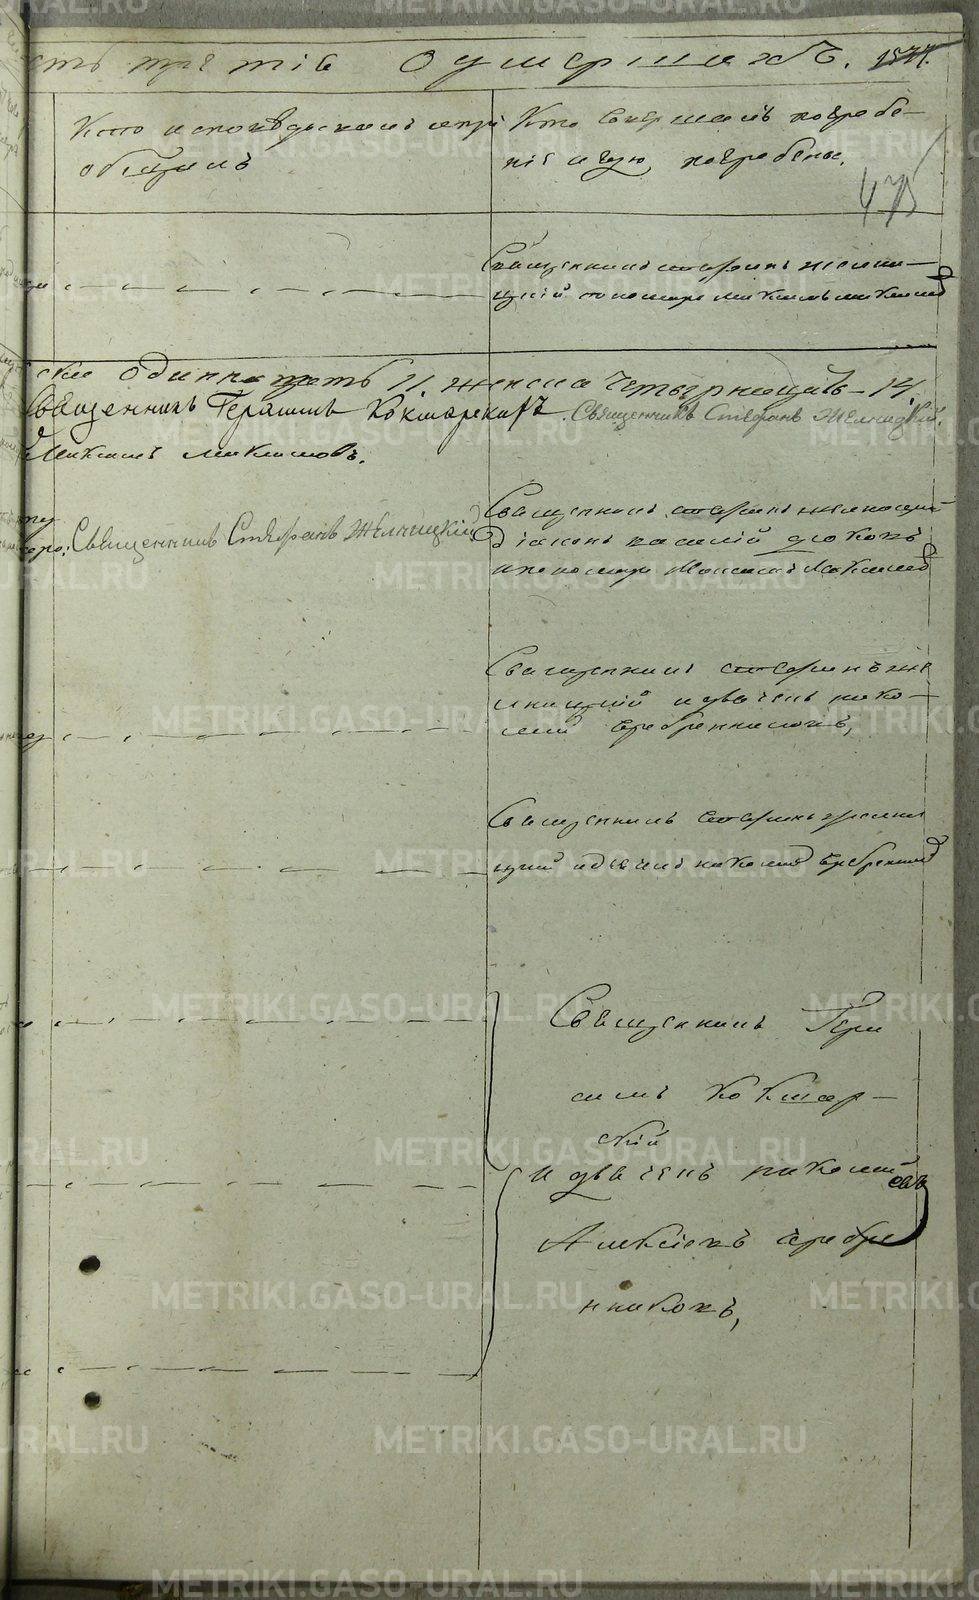 сть третія Оумершихъ.
Кто исповѣдывалъ и прі
общалъ
Кто Совершалъ погребе-
ніе и гдѣ погребены.
475
Священникъ Стефанъ Желни-
цкій и пономарь Максимъ Максимовъ
ское одиннадцать 11. женска четырнадцать 14.
Священникъ Герасимъ Кокшарскій. Священникъ Стефанъ Желницкій.
Максимъ Максимовъ.
Священникъ Стефанъ Желницкій
Священникъ Стефанъ Желницкій
діаконъ Василій
и пономарь Максимъ Максимовъ
Священникъ Стефанъ Же
лницкій и дьячекъ Нико-
лай Серебренниковъ,
Священникъ Стефанъ Желни
цкій и дьячекъ Николай Серебренниковъ
Священникъ Гера
симъ Кокшар-
скій
и дьячекъ Николай
Алексѣевъ Серебре
нниковъ,
METRIKI.GASO-URAL.RU